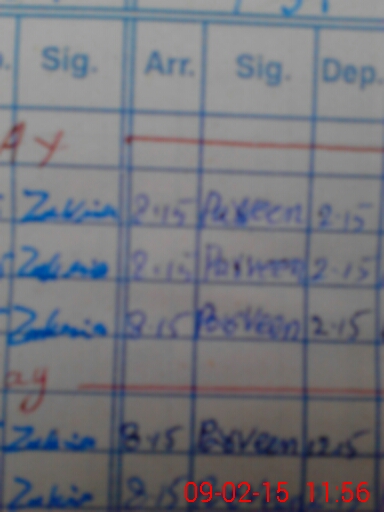 Sig. Arr. Sig. Dep.
Ay
Zakia 8.15 Parveen 2.15
Zakia 8.15 Parveen 2.15
Zakia 8.15 Parveen 2.15
ay
Zakia 8.15 Parveen 12.15
Zakia 8.15
09-02-15 11:56